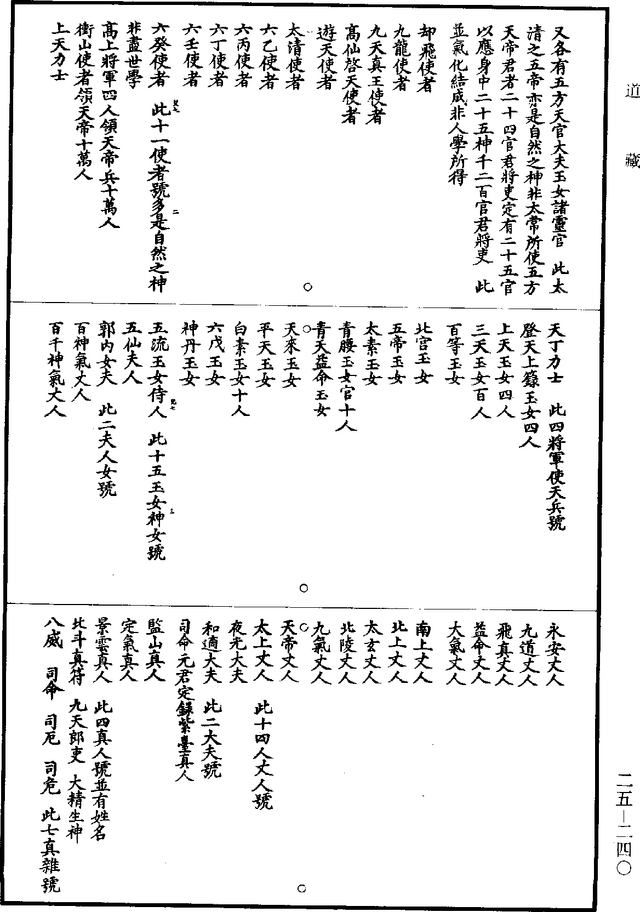 道藏
又各有五方天官大夫玉女諸靈官 此太
清之五帝亦是自然之神非太常所使五方
天帝君者二十四官君將吏定有二十五官
以應身中二十五神千二百官君將吏 此
並氣化結成非人學所得
却飛使者
九龍使者
九天真王使者
高仙啓天使者
遊天使者
太清使者
六乙使者
六丙使者
六丁使者
六壬使者
六癸使者 此十一使者號多是自然之神
非盡世學
高上將軍四人領天帝兵十萬人
衝山使者領天帝十萬人
上天力士
天丁力士 此四將軍使天兵號
登天上籙玉女四人
上天玉女四人
三天玉女百人
百等玉女
北宮玉女
五帝玉女
太素玉女
青腰玉女官十人
青天益命玉女
天來玉女
平天玉女
白素玉女十人
六戊玉女
神丹玉女
五流玉女侍人 此十五玉女神女號
五仙夫人
郭內女夫 此二夫人女號
百神氣丈人
百千神氣丈人
永安丈人
九道丈人
飛真丈人
益命丈人
大氣丈人
南上丈人
北上丈人
太玄丈人
北陵丈人
九氣丈人
天帝丈人
太上丈人 此十四人丈人號
夜光大夫
和適大夫 此二大夫號
司命元君定錄紫臺真人
監山真人
定氣真人
景雲真人 此四真人號並有姓名
北斗真符 九天郎吏 大精生神
八威 司命 司厄 司危 此七真雜號
二五－二四〇